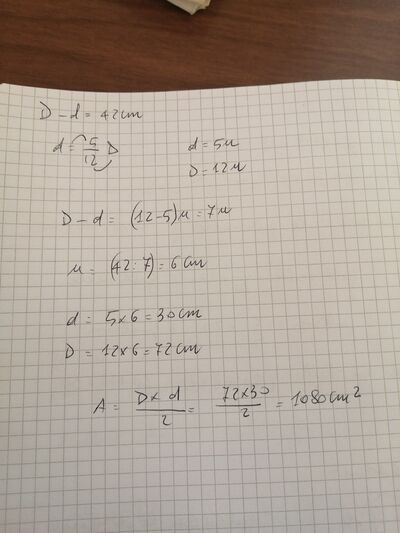 D - d = 42 cm
d = 5/12 D
d = 5u
D = 12u
D - d = (12-5)u = 7u
u = (42:7) = 6 cm
d = 5x6 = 30 cm
D = 12x6 = 72 cm
A = D x d / 2 = 72x30 / 2 = 1080 cm²